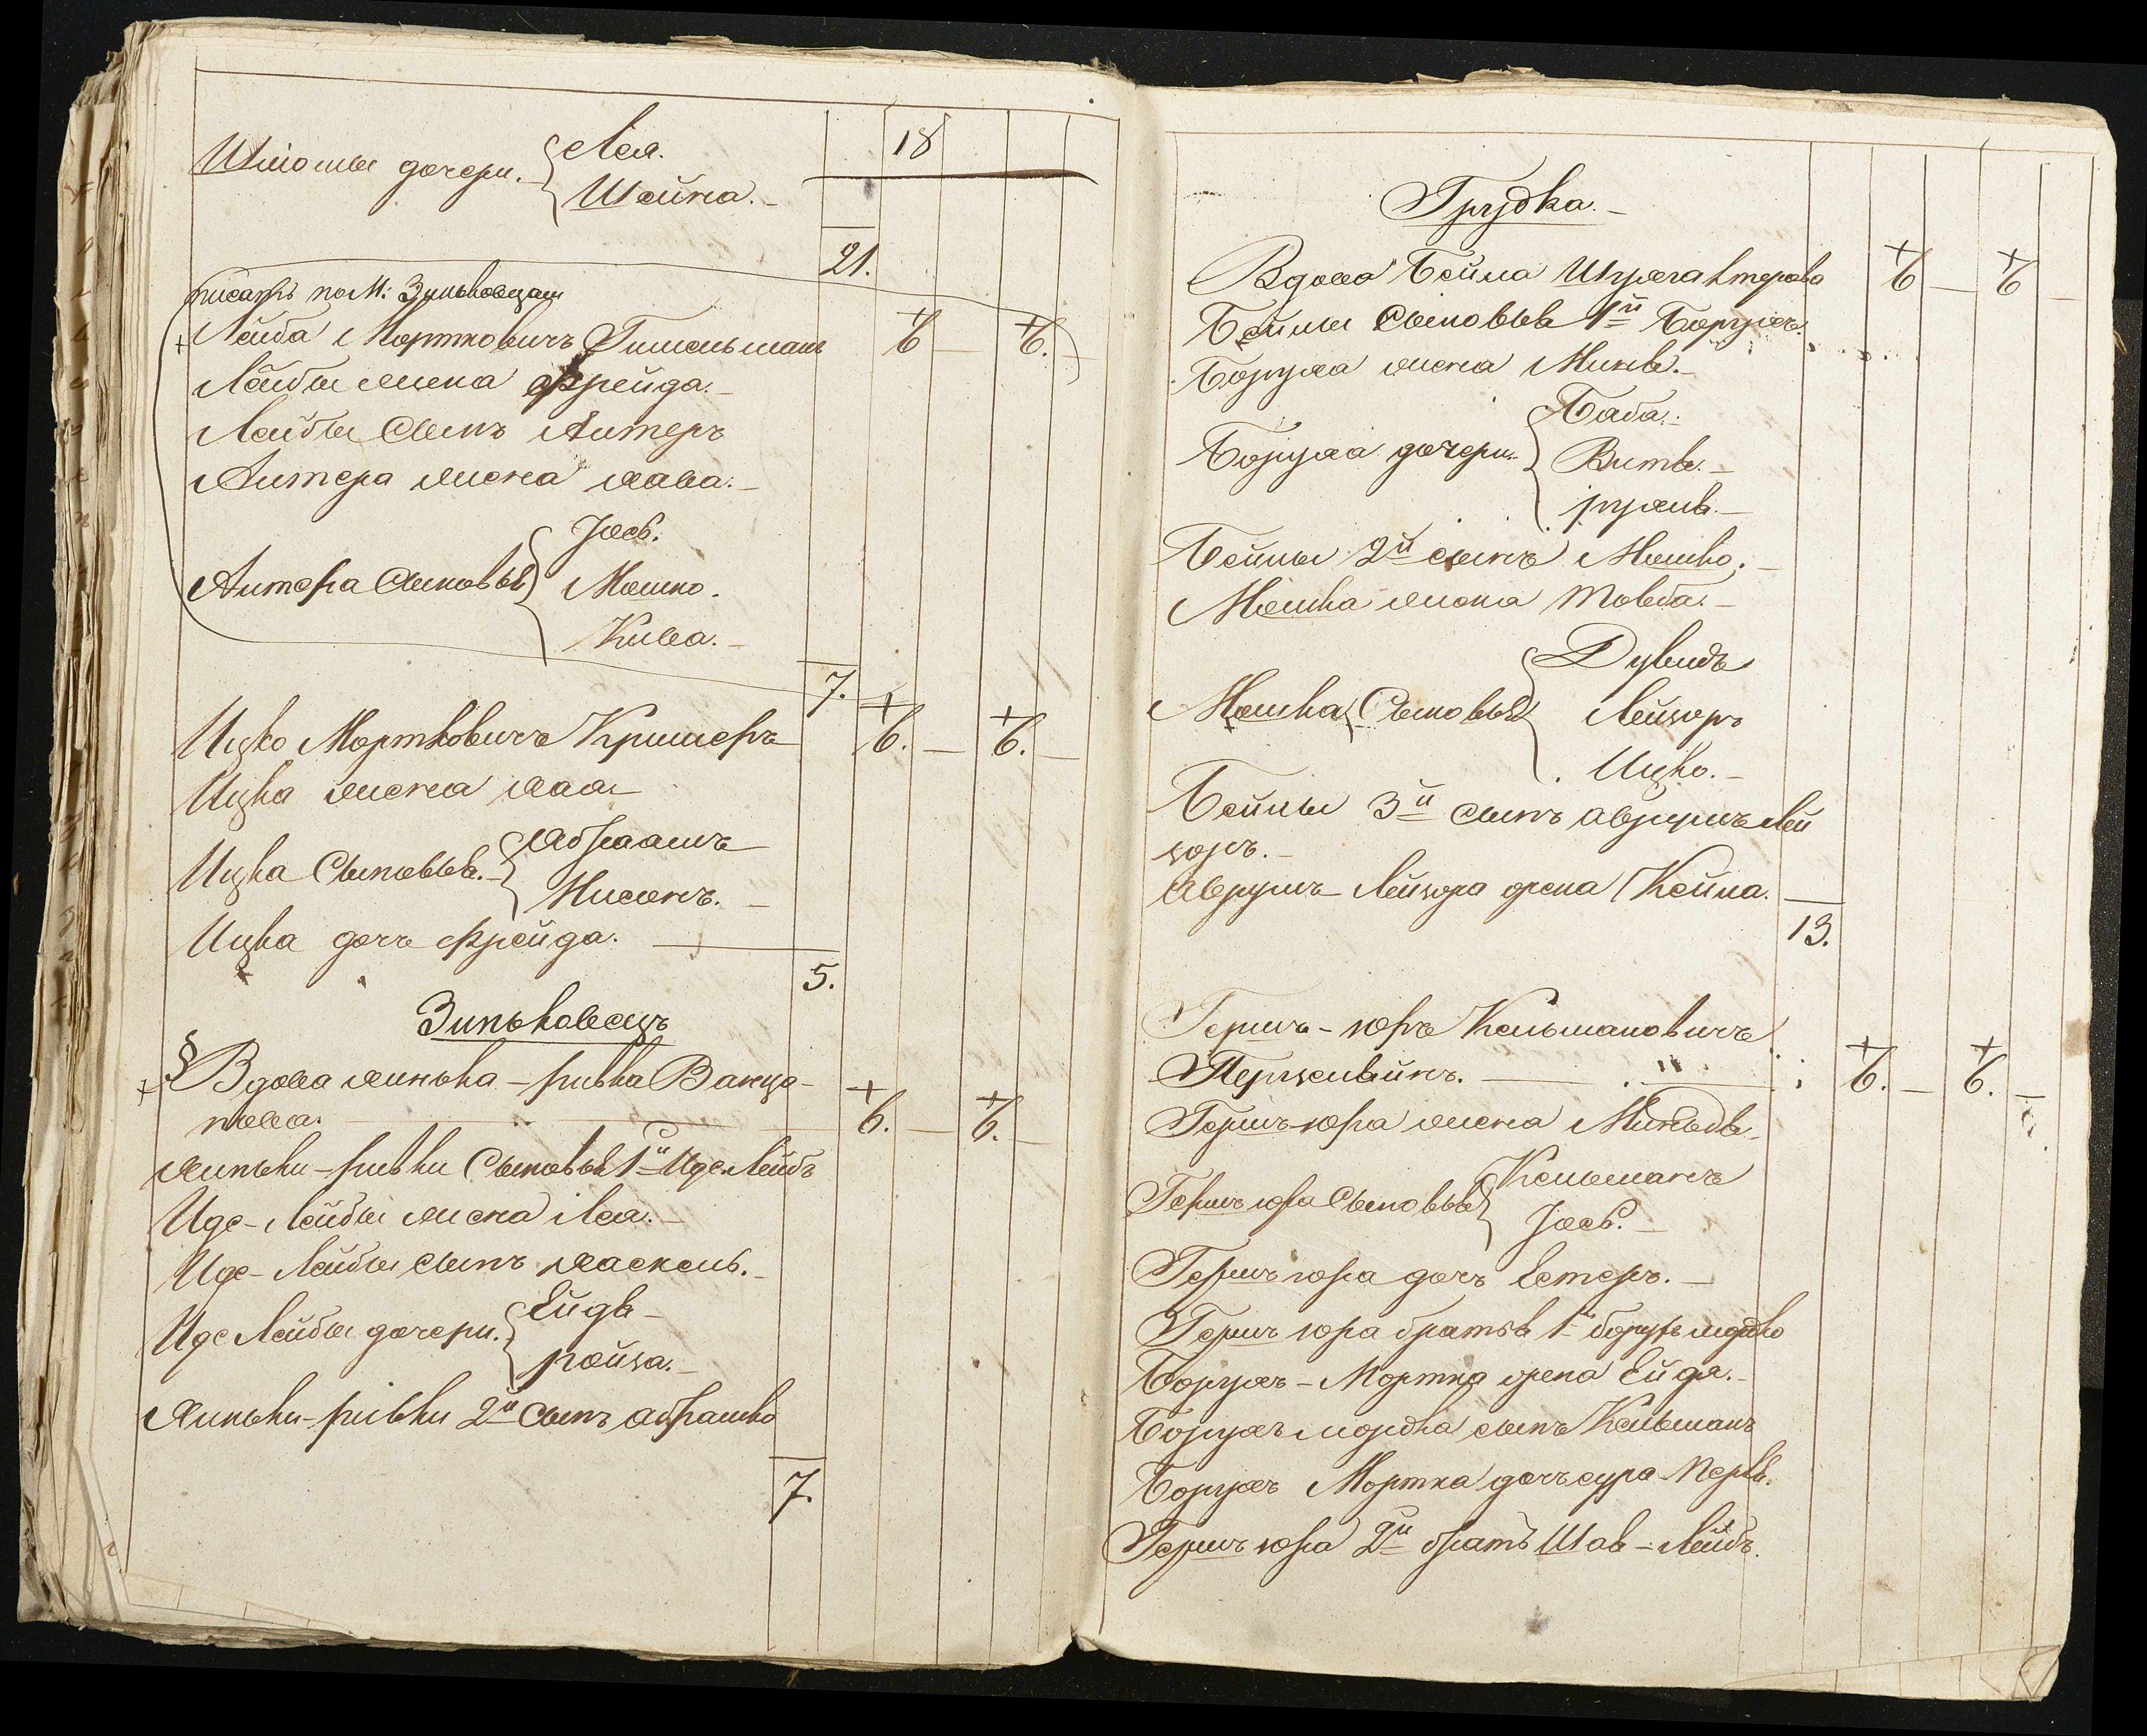 18
Шлiомы дочери. Лея.
Шейна.
21.
писать по М: Зиньковцам
Лейба Мортковичъ Гительманъ
Лейбы жена Фрейда.
Лейбы Сынъ Антеръ
Антера жена хава.
Антера Сыновья
Iось.
Мошко.
Кива.
7.
Ицко Мортковичъ Кришеръ 6. 6.
Ицка жена хая
Ицка Сыновья.
Абраамъ
Нисенъ.
Ицка дочь Фрейда.
5.
Зиньковецъ
Вдова -ривка 6. 6.
-ривки Сыновья 1й Иде-Лейбъ
Иде-Лейбы жена Лея.
Иде-Лейбы сынъ хаскель.
Иде Лейбы дочери.
Ейдя
ройза.
-ривки 2й сынъ абрашко
7.
Грудка.
Вдова Бейла
Бейлы Сыновья 1й Борухъ.
Боруха жена
Боруха дочери.
Баба.
Витя.
рухль.
Бейлы 2й сынъ Мошко.
Мошка жена Товба.
Мошка Сыновья
Дувидъ
Лейзоръ
Ицко.
Бейлы 3й сынъ аврумъ Лей
зоръ.
Аврумъ Лейзора жена Кейла.
13.
Гершъ-юръ Кельмановичъ
Перзельвейнъ. 6. 6.
Гершъ-юра жена
Гершъ юра Сыновья
Кельманъ
Iось.
Гершъ юра дочь Естеръ.
Гершъ юра братья 1й борухъ мордко
Борухъ-Мортка жена Ейдя.
Борухъ мордка сынъ Кельманъ
Борухъ Мортка дочь сура-Перль.
Гершъ юра 2й братъ Шая-Лейбъ.